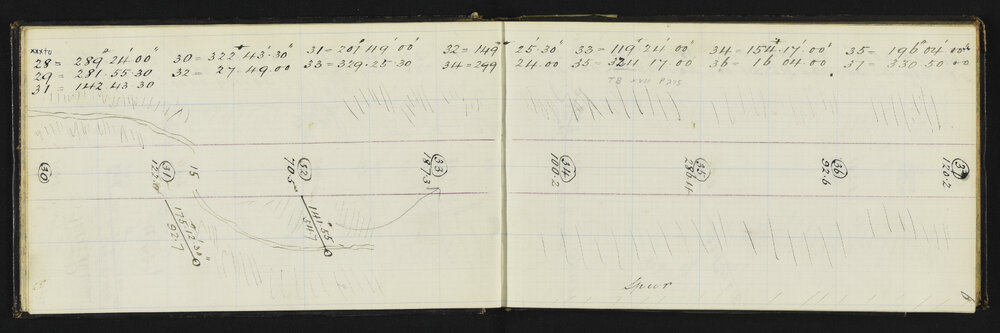 xxxto
28 = 289° 24' 00" 30 = 322° 43' 30" 31 = 201° 49' 00" 32 = 149° 25' 30" 33 = 119° 24' 00" 34 = 154° 17' 00" 35 = 196° 04' 00"
29 = 281. 55. 30 32 = 27. 49. 00 33 = 329. 25. 30 34 = 299 24. 00 35 = 17. 00 36 = 16 04. 00 37 = 330. 50. 00
31 = 142. 43. 30
TB XVII P 275
30
31
122.
15
70.5
33
187.3
34
100.2
35
286.4
36
92.6
120.2
175° 12' 30"
92.7
141° 55'
54.7
Spur